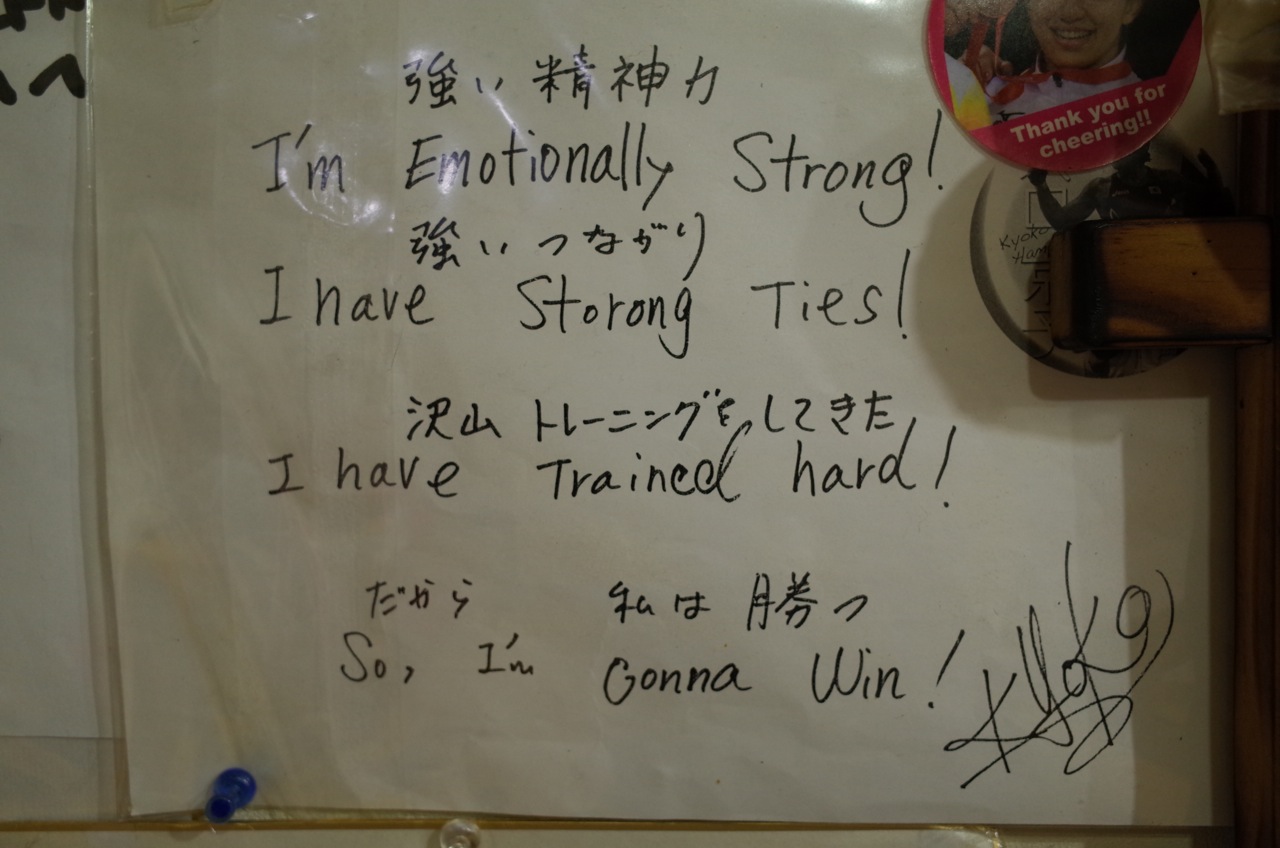 強い精神力
I'm Emotionally Strong!
強いつながり
I have Storong Ties!
沢山トレーニングをしてきた
I have Trained hard!
だから 私は勝つ
So, I'm Gonna Win!
Kyoko
Thank you for
cheering!!
Kyoko